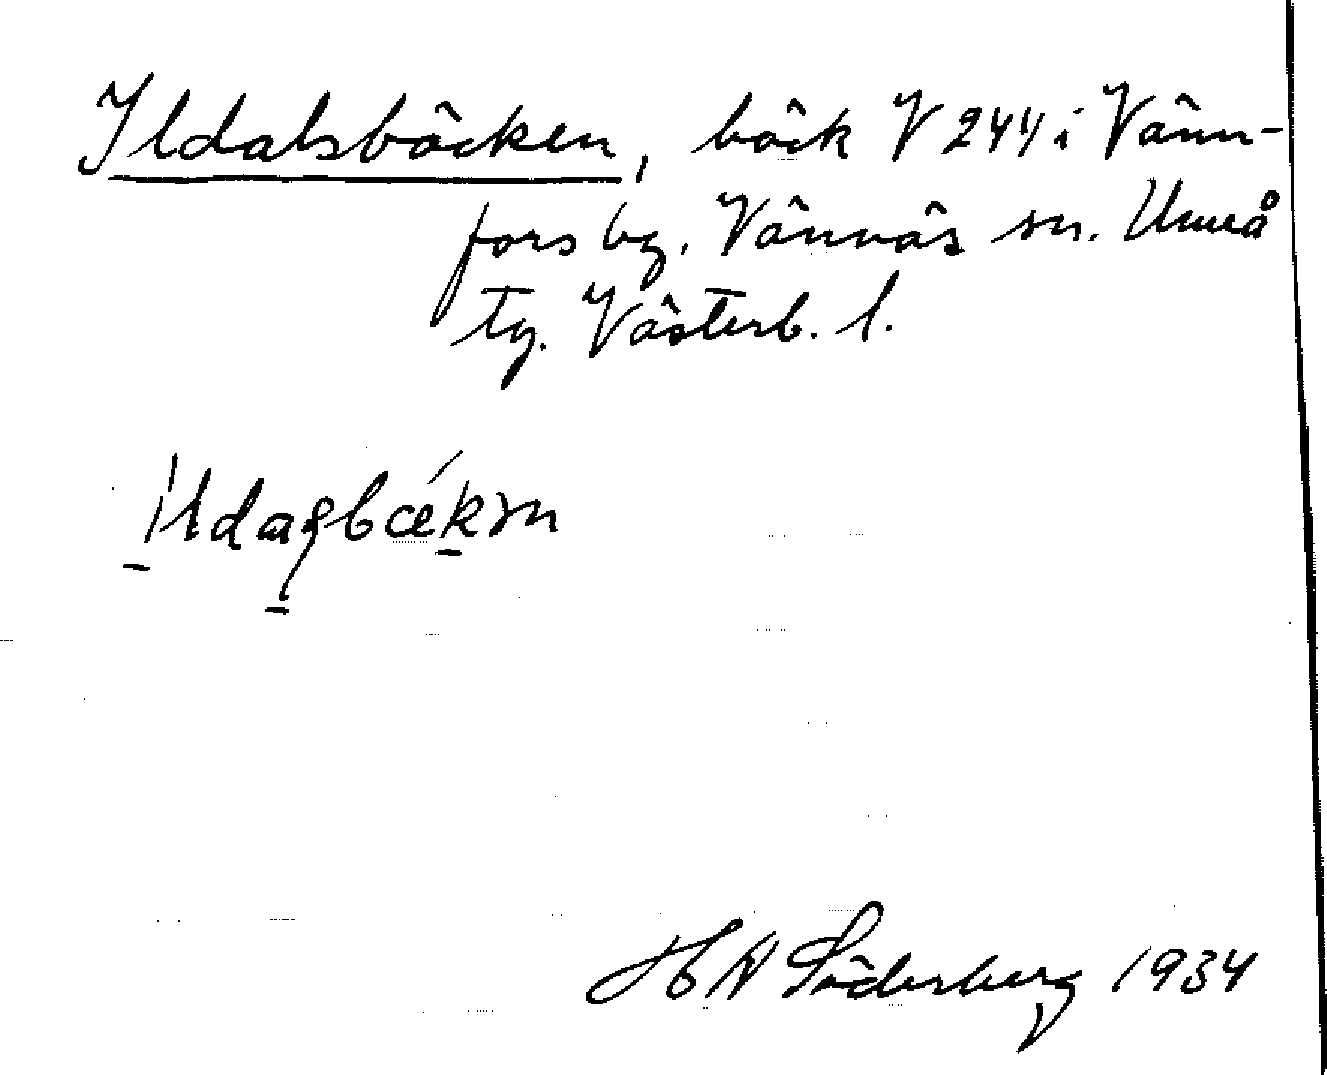 Ildalsbäcken, bäck V 244 i Vänn-
fors by. Vännäs sn. Umeå
tg. Västerb. l.
H A Söderberg 1934